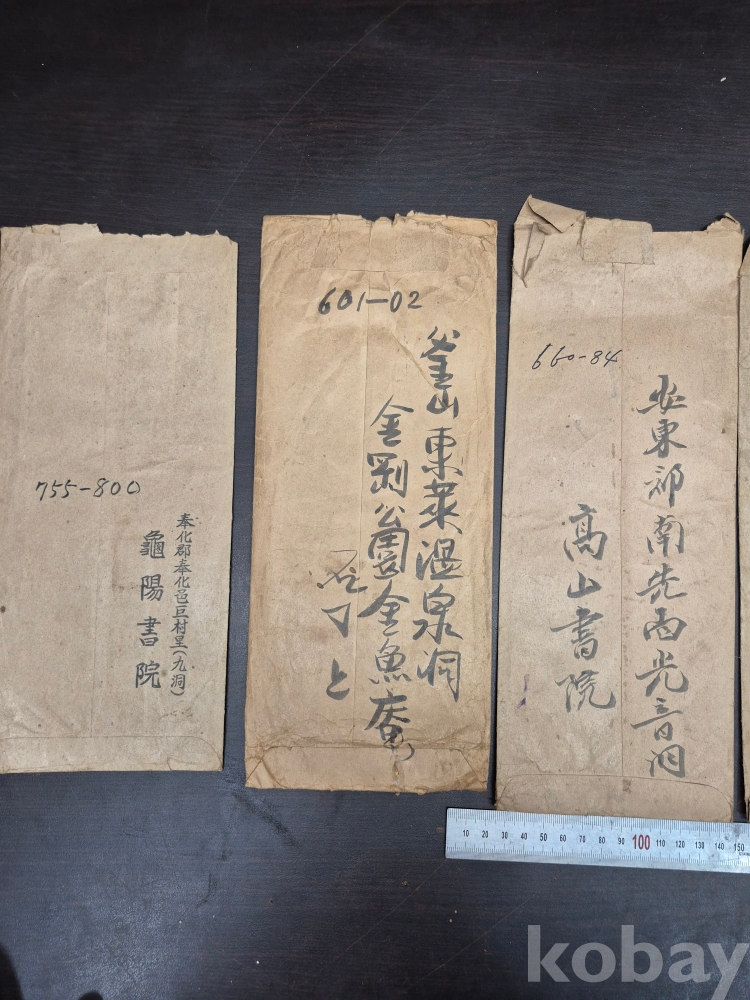 755-800
奉化郡奉化邑巨村里(九洞)
龜陽書院
601-02
釜山東萊溫泉洞
金剛公園金魚庵
上
660-84
安東郡南先面光音洞
高山書院
10 20 30 40 50 60 70 80 90 100 110 120 130 140 150
kobay